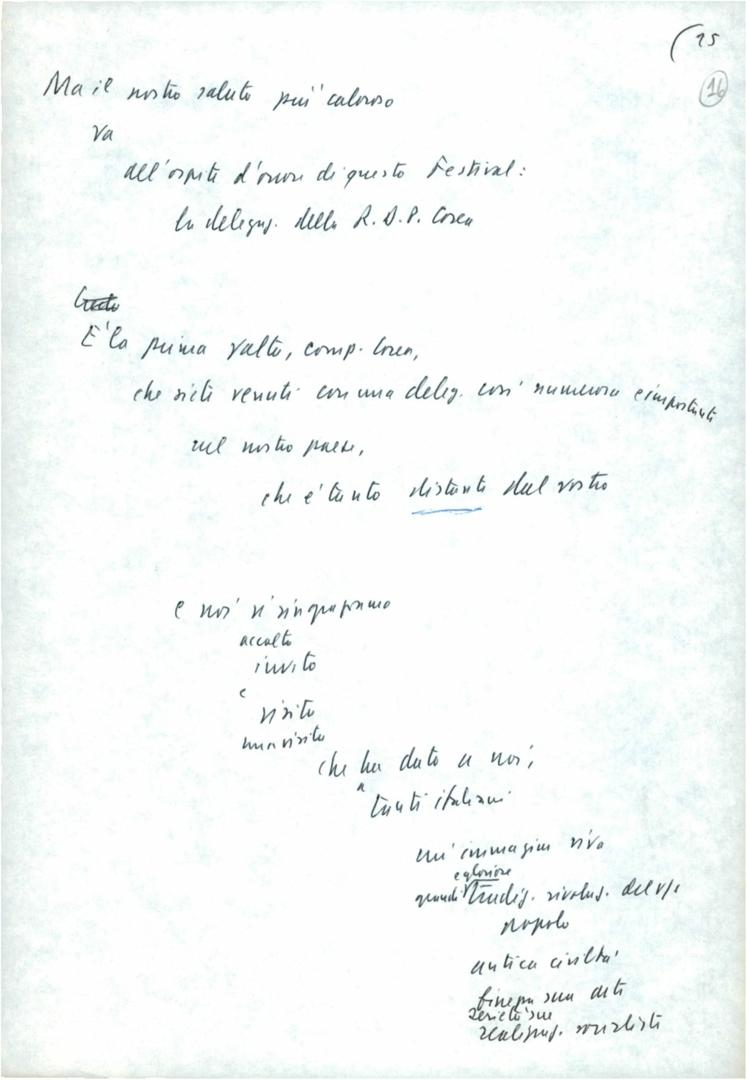 (15
16
Ma il nostro saluto più caloroso
va
all'ospite d'onore di questo Festival:
la delegaz. della R.D.P. Corea
E' la prima volta, comp. Corea,
che siete venuti con una deleg. così numerosa e importante
nel nostro paese,
che è tanto distante dal vostro
e noi vi ringraziamo
accolto
invito
e
visita
una visita
che ha dato a noi,
a
tanti italiani
un'immagine viva
e gloriose
grandi tradiz. rivoluz. del vs.
popolo
antica civiltà
finezza sua arte
serietà sue
realizzaz. socialiste